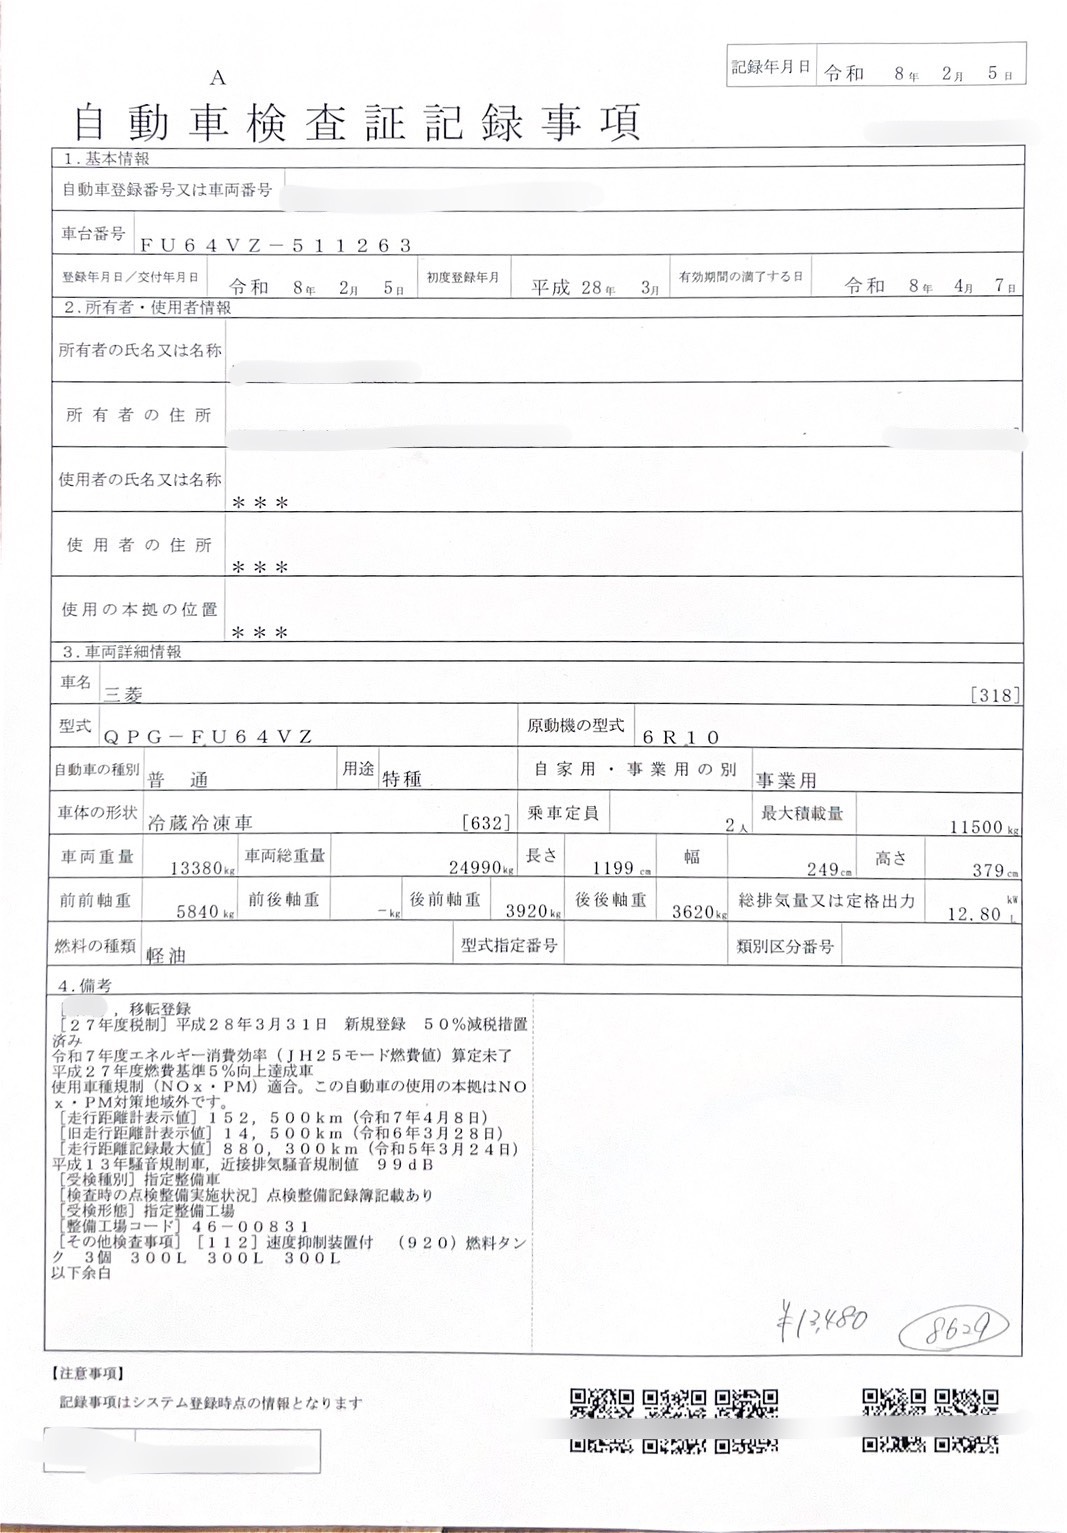 記録年月日 令和 8年 2月 5日
A
自動車検査証記録事項
1.基本情報
自動車登録番号又は車両番号
車台番号 FU64VZ-511263
登録年月日/交付年月日 令和 8年 2月 5日 初度登録年月 平成 28年 3月 有効期間の満了する日 令和 8年 4月 7日
2.所有者・使用者情報
所有者の氏名又は名称
所有者の住所
使用者の氏名又は名称 ***
使用者の住所 ***
使用の本拠の位置 ***
3.車両詳細情報
車名 三菱 [318]
型式 QPG-FU64VZ 原動機の型式 6R10
自動車の種別 普通 用途 特種 自家用・事業用の別 事業用
車体の形状 冷蔵冷凍車 [632] 乗車定員 2人 最大積載量 11500kg
車両重量 13380kg 車両総重量 24990kg 長さ 1199cm 幅 249cm 高さ 379cm
前前軸重 5840kg 前後軸重 -kg 後前軸重 3920kg 後後軸重 3620kg 総排気量又は定格出力 12.80 kW L
燃料の種類 軽油 型式指定番号 類別区分番号
4.備考
[ ,移転登録
[27年度税制]平成28年3月31日 新規登録 50%減税措置
済み
令和7年度エネルギー消費効率(JH25モード燃費値)算定未了
平成27年度燃費基準5%向上達成車
使用車種規制(NOx・PM)適合。この自動車の使用の本拠はNO
x・PM対策地域外です。
[走行距離計表示値]152,500km(令和7年4月8日)
[旧走行距離計表示値]14,500km(令和6年3月28日)
[走行距離記録最大値]880,300km(令和5年3月24日)
平成13年騒音規制車,近接排気騒音規制値 99dB
[受検種別]指定整備車
[検査時の点検整備実施状況]点検整備記録簿記載あり
[受検形態]指定整備工場
[整備工場コード]46-00831
[その他検査事項][112]速度抑制装置付 (920)燃料タン
ク 3個 300L 300L 300L
以下余白
¥13,480 8629
【注意事項】
記録事項はシステム登録時点の情報となります